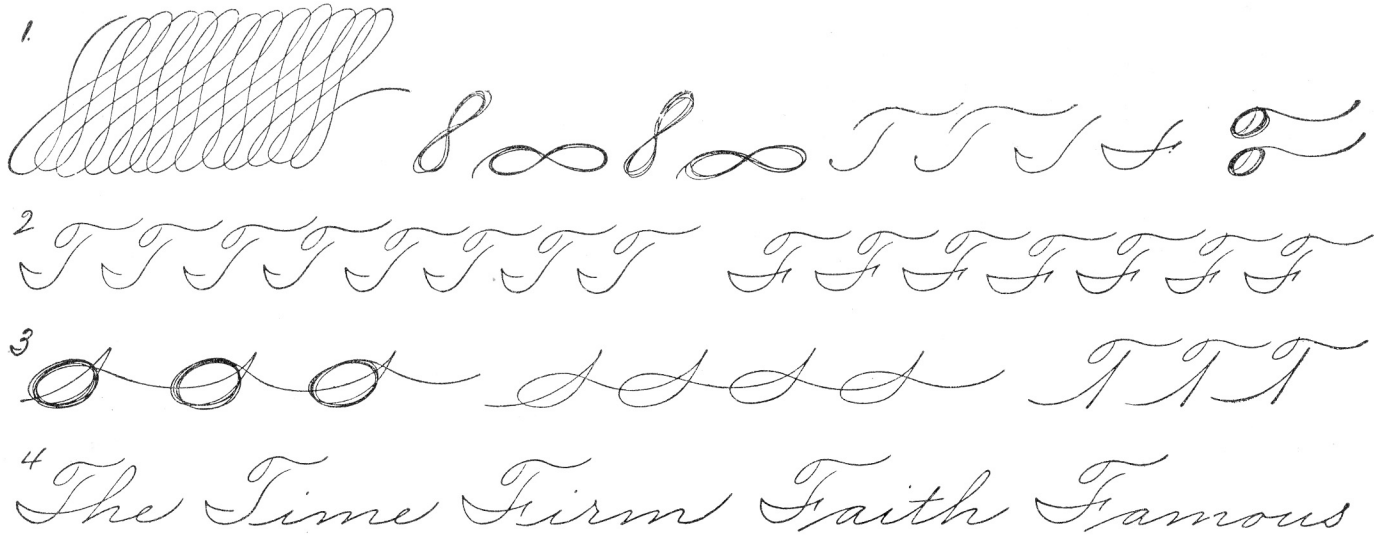 1.
2 T T T T T T T T F F F F F F F
3 T T T
4 The Time Firm Faith Famous